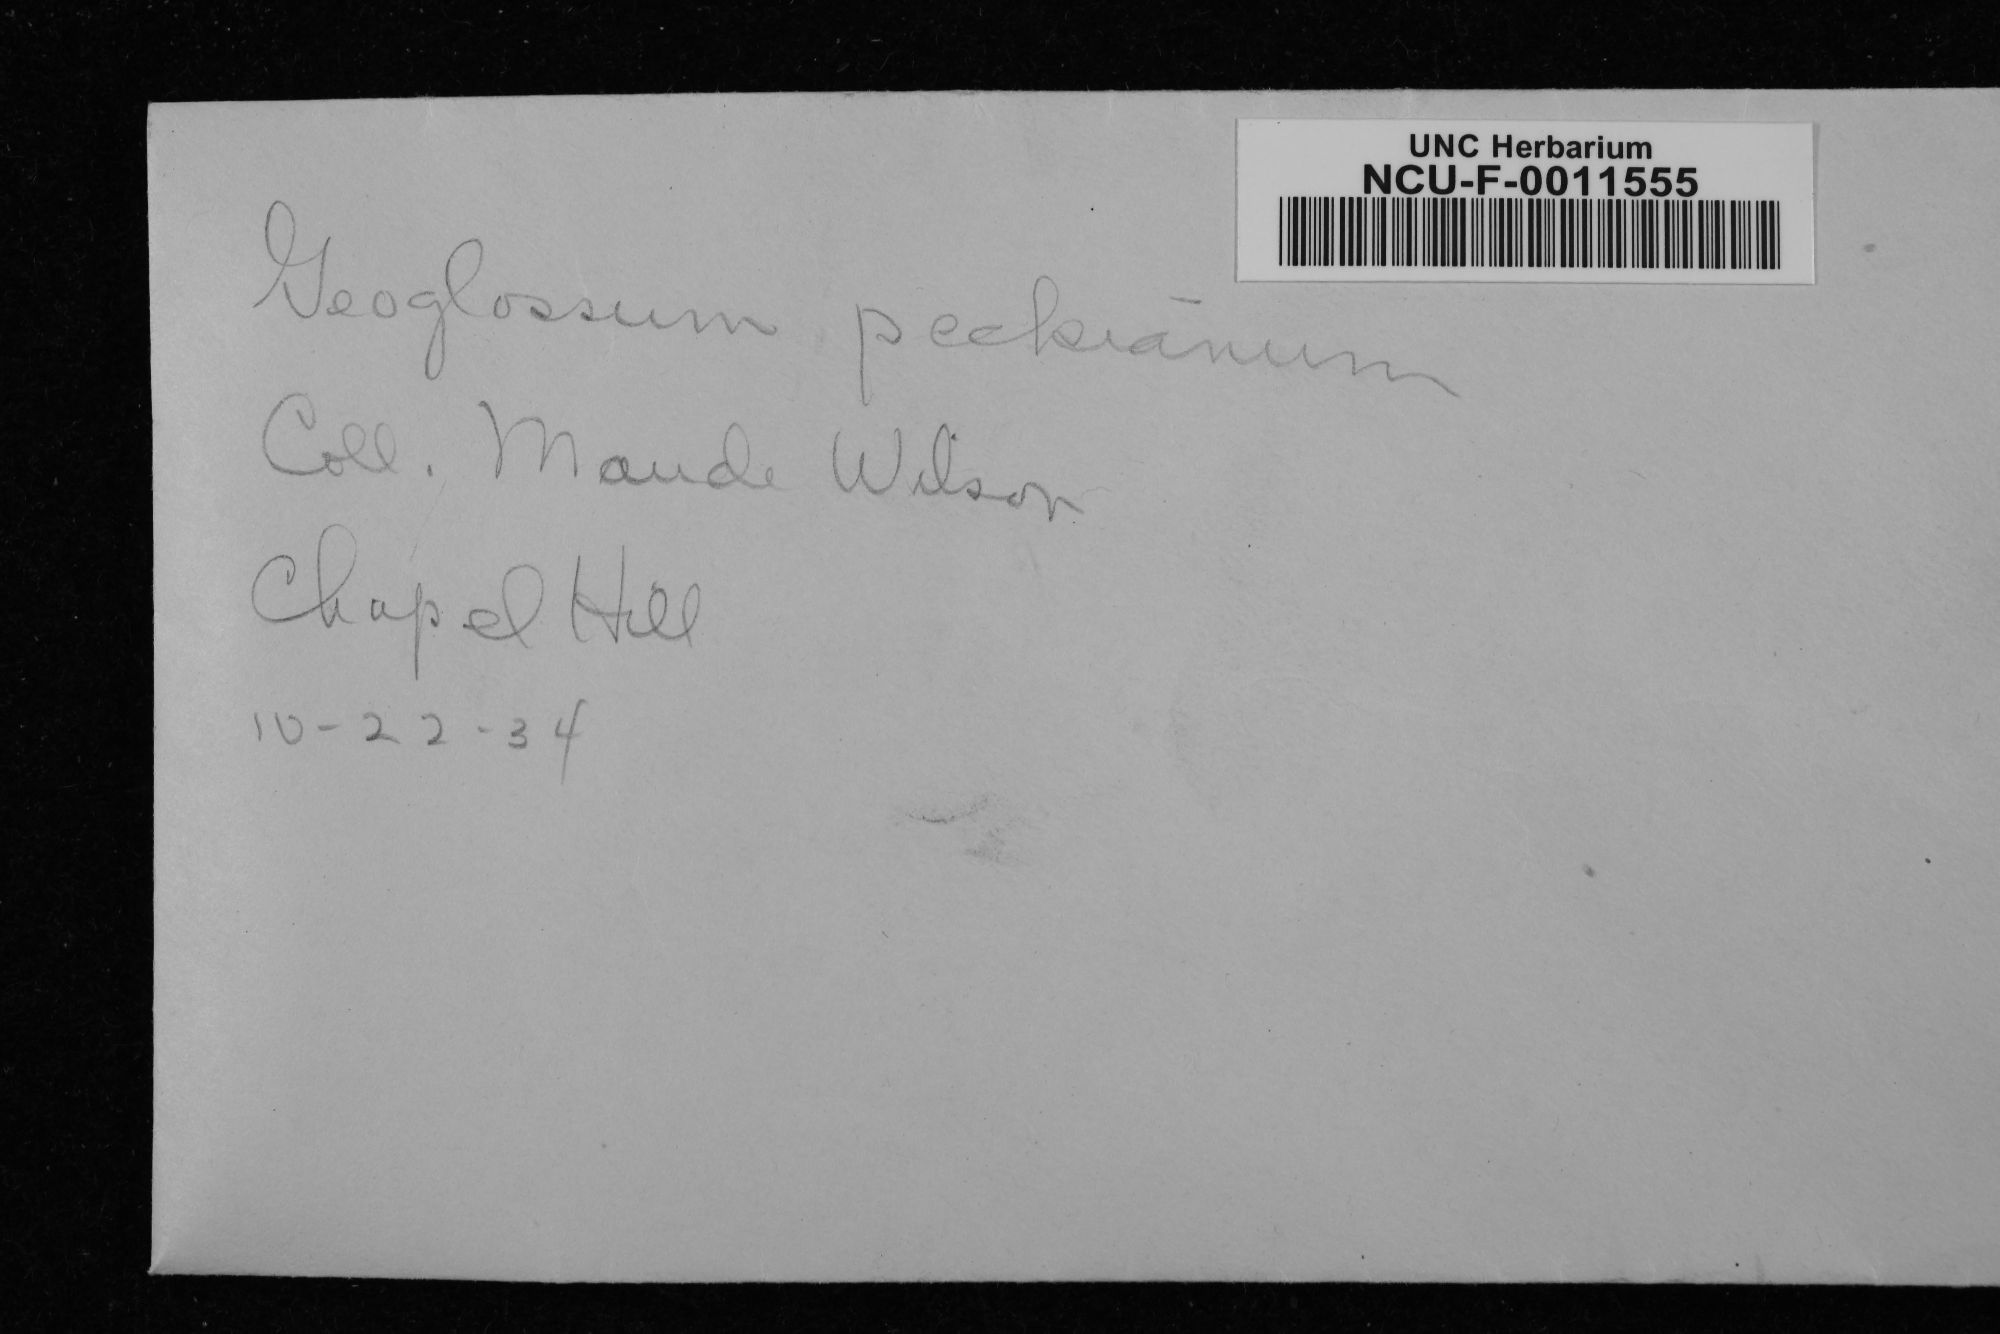 UNC Herbarium
NCU-F-0011555
Geoglossum peckianum
Coll. Maude Wilson
Chapel Hill
10-22-34